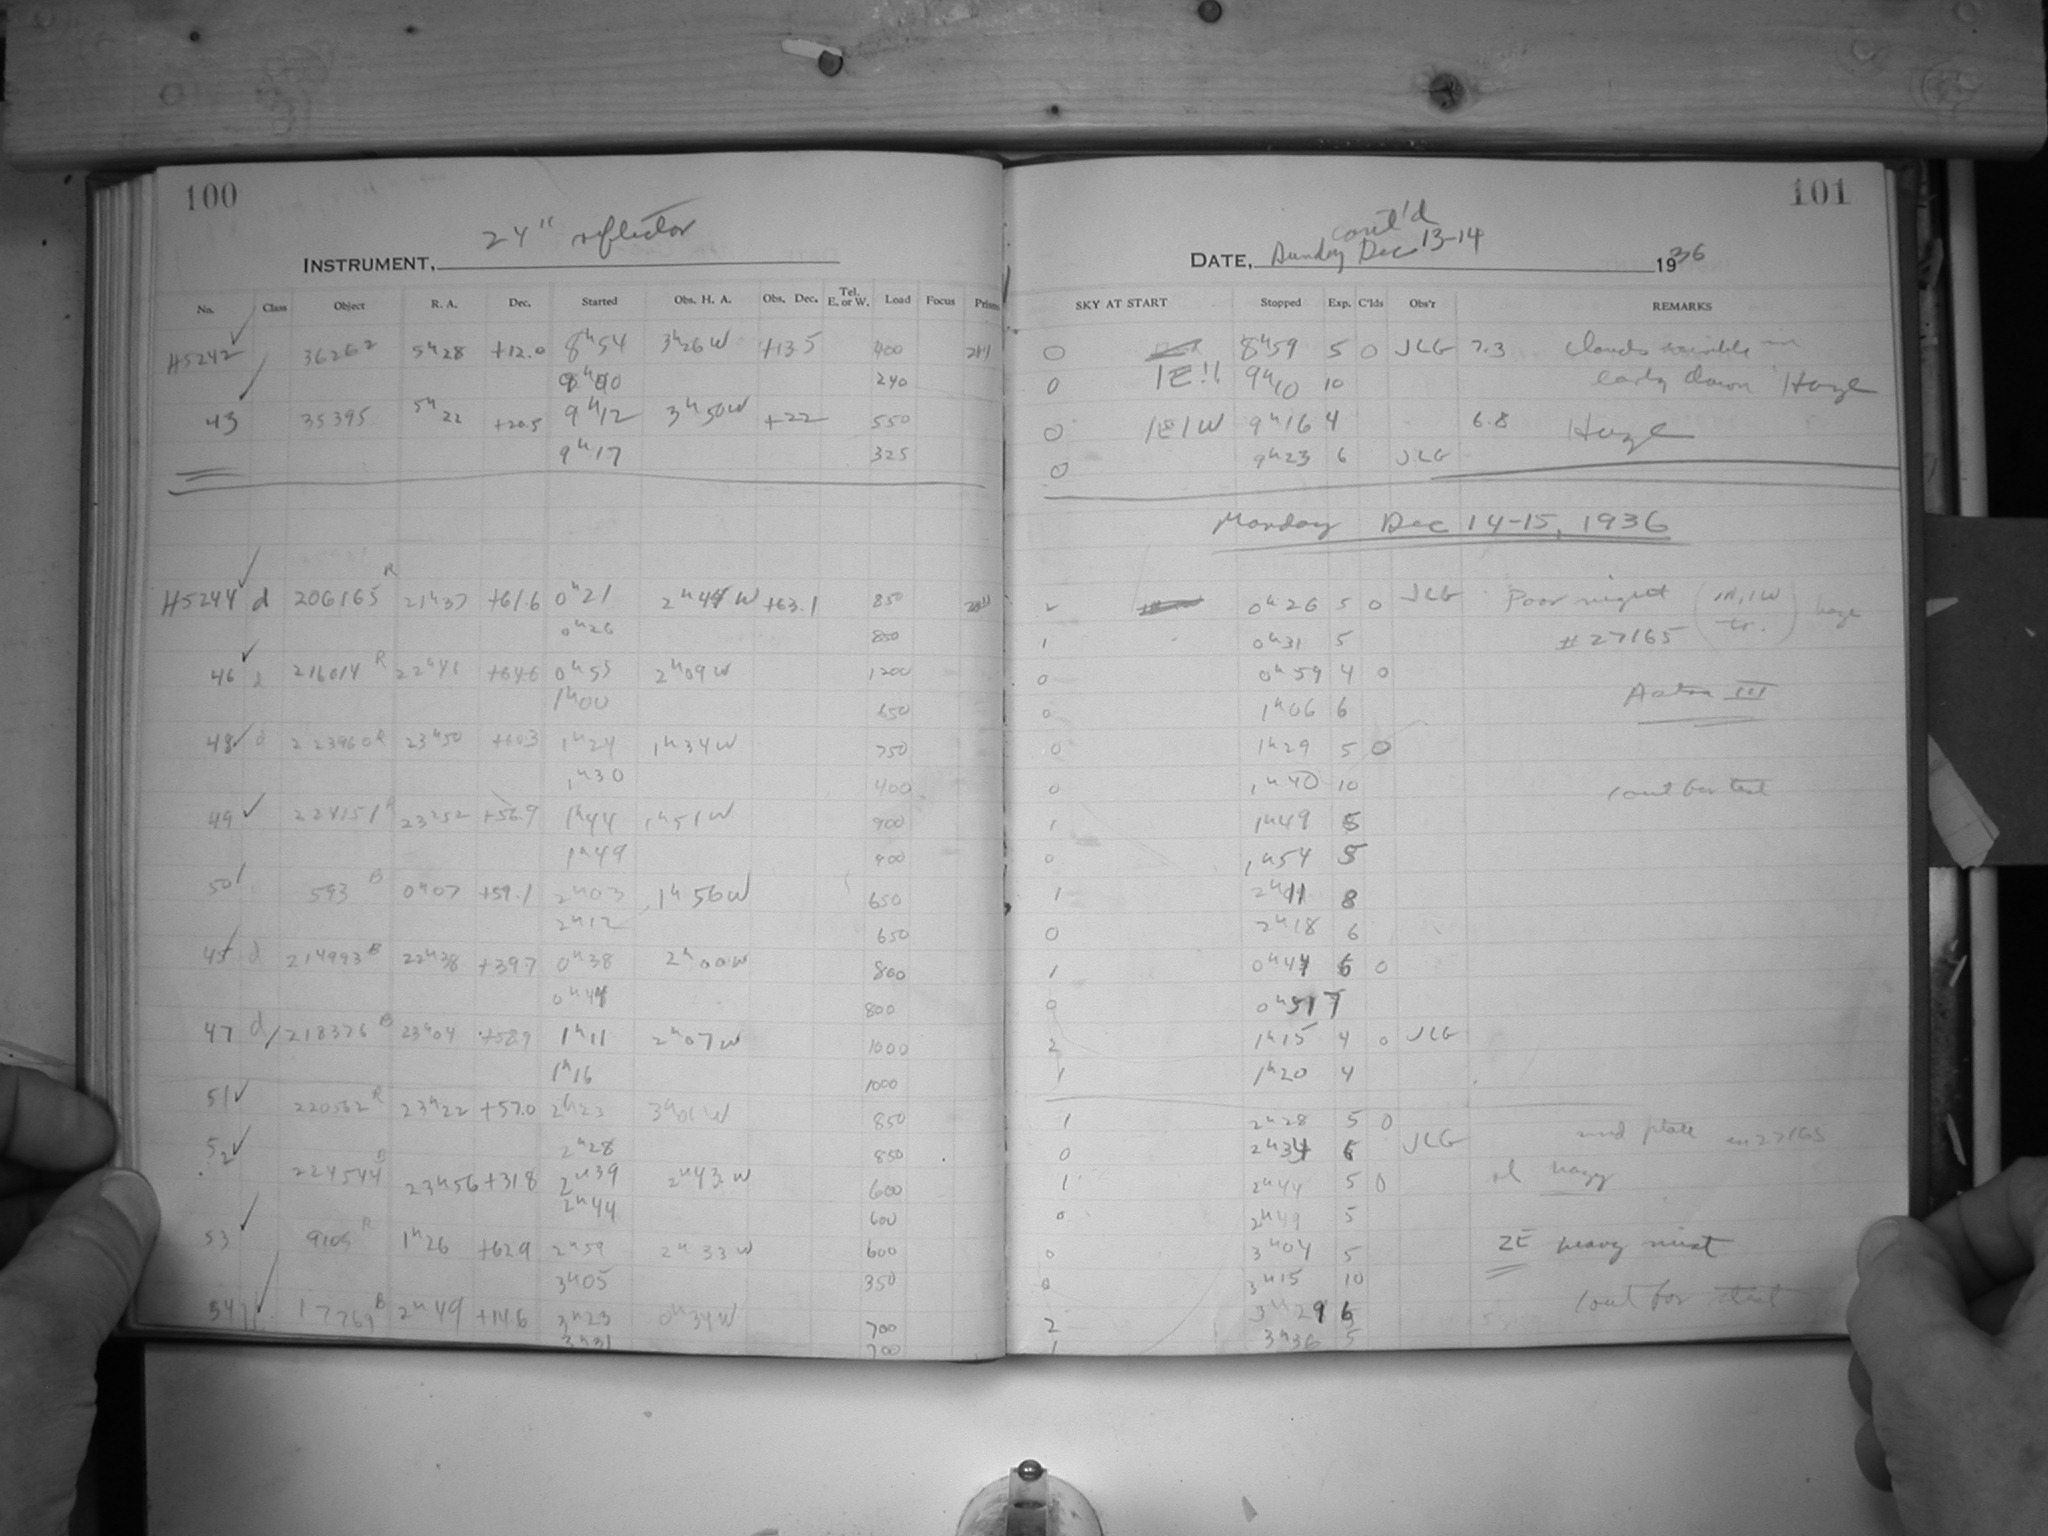 100
24" reflector
INSTRUMENT,
No. Class Object R. A. Dec. Started Obs. H. A. Obs. Dec. Tel. E. or W. Load Focus Prism
H5242 36262 5h28 +12.0 8h54 3h26W +13.5 400
240
43 35395 5h22 +20.5 9h12 3h50W +22 550
9h17 325
H5244 d 206165 R 21h37 +61.6 0h21 2h44W +63.1 850
0h26 850
46 d 216014 R 22h41 +64.6 0h55 2h09W 1200
1h00 650
48 d 223960 R 23h50 +60.3 1h24 1h34W 750
1h30 400
49 224151 R 23h52 +56.9 1h44 1h51W 900
1h49 400
50 593 B 0h07 +59.1 2h03 1h56W 650
2h12 650
45 d 214993 B 22h38 +39.7 0h38 2h00W 800
0h44 800
47 d 218376 B 23h04 +58.9 1h11 2h07W 1000
1h16 1000
51 220562 R 23h22 +57.0 2h23 3h01W 850
2h28 850
52 224544 B 23h56 +31.8 2h39 2h43W 600
2h44 600
53 9105 R 1h26 +62.9 2h59 2h33W 600
3h05 350
54 17769 B 2h49 +14.6 3h23 0h34W 700
3h31 700
101
cont'd
DATE, Sunday Dec 13-14 1936
SKY AT START Stopped Exp. C'lds Obs'r REMARKS
0 8h59 5 0 JLG 7.3 Clouds variable in
0 1E!! 9h10 10 early dawn Haze
0 1E1W 9h16 4 6.8 Haze
0 9h23 6 JLG
Monday Dec 14-15, 1936
2 0h26 5 0 JLG Poor night (1N,1W tr.) haze
1 0h31 5 #27165
0 0h59 4 0
0 1h06 6 Astro III
0 1h29 5 0
0 1h40 10 cont for test
1 1h49 5
0 1h54 5
1 2h11 8
0 2h18 6
1 0h44 6 0
0 0h51 7
2 1h15 4 0 JLG
1 1h20 4
1 2h28 5 0 end plate em 27165
0 2h34 6 JLG
1 2h44 5 0 hazy
0 2h49 5
0 3h04 5 2E heavy mist
0 3h15 10
2 3h29 6 cont for test
1 3h36 5